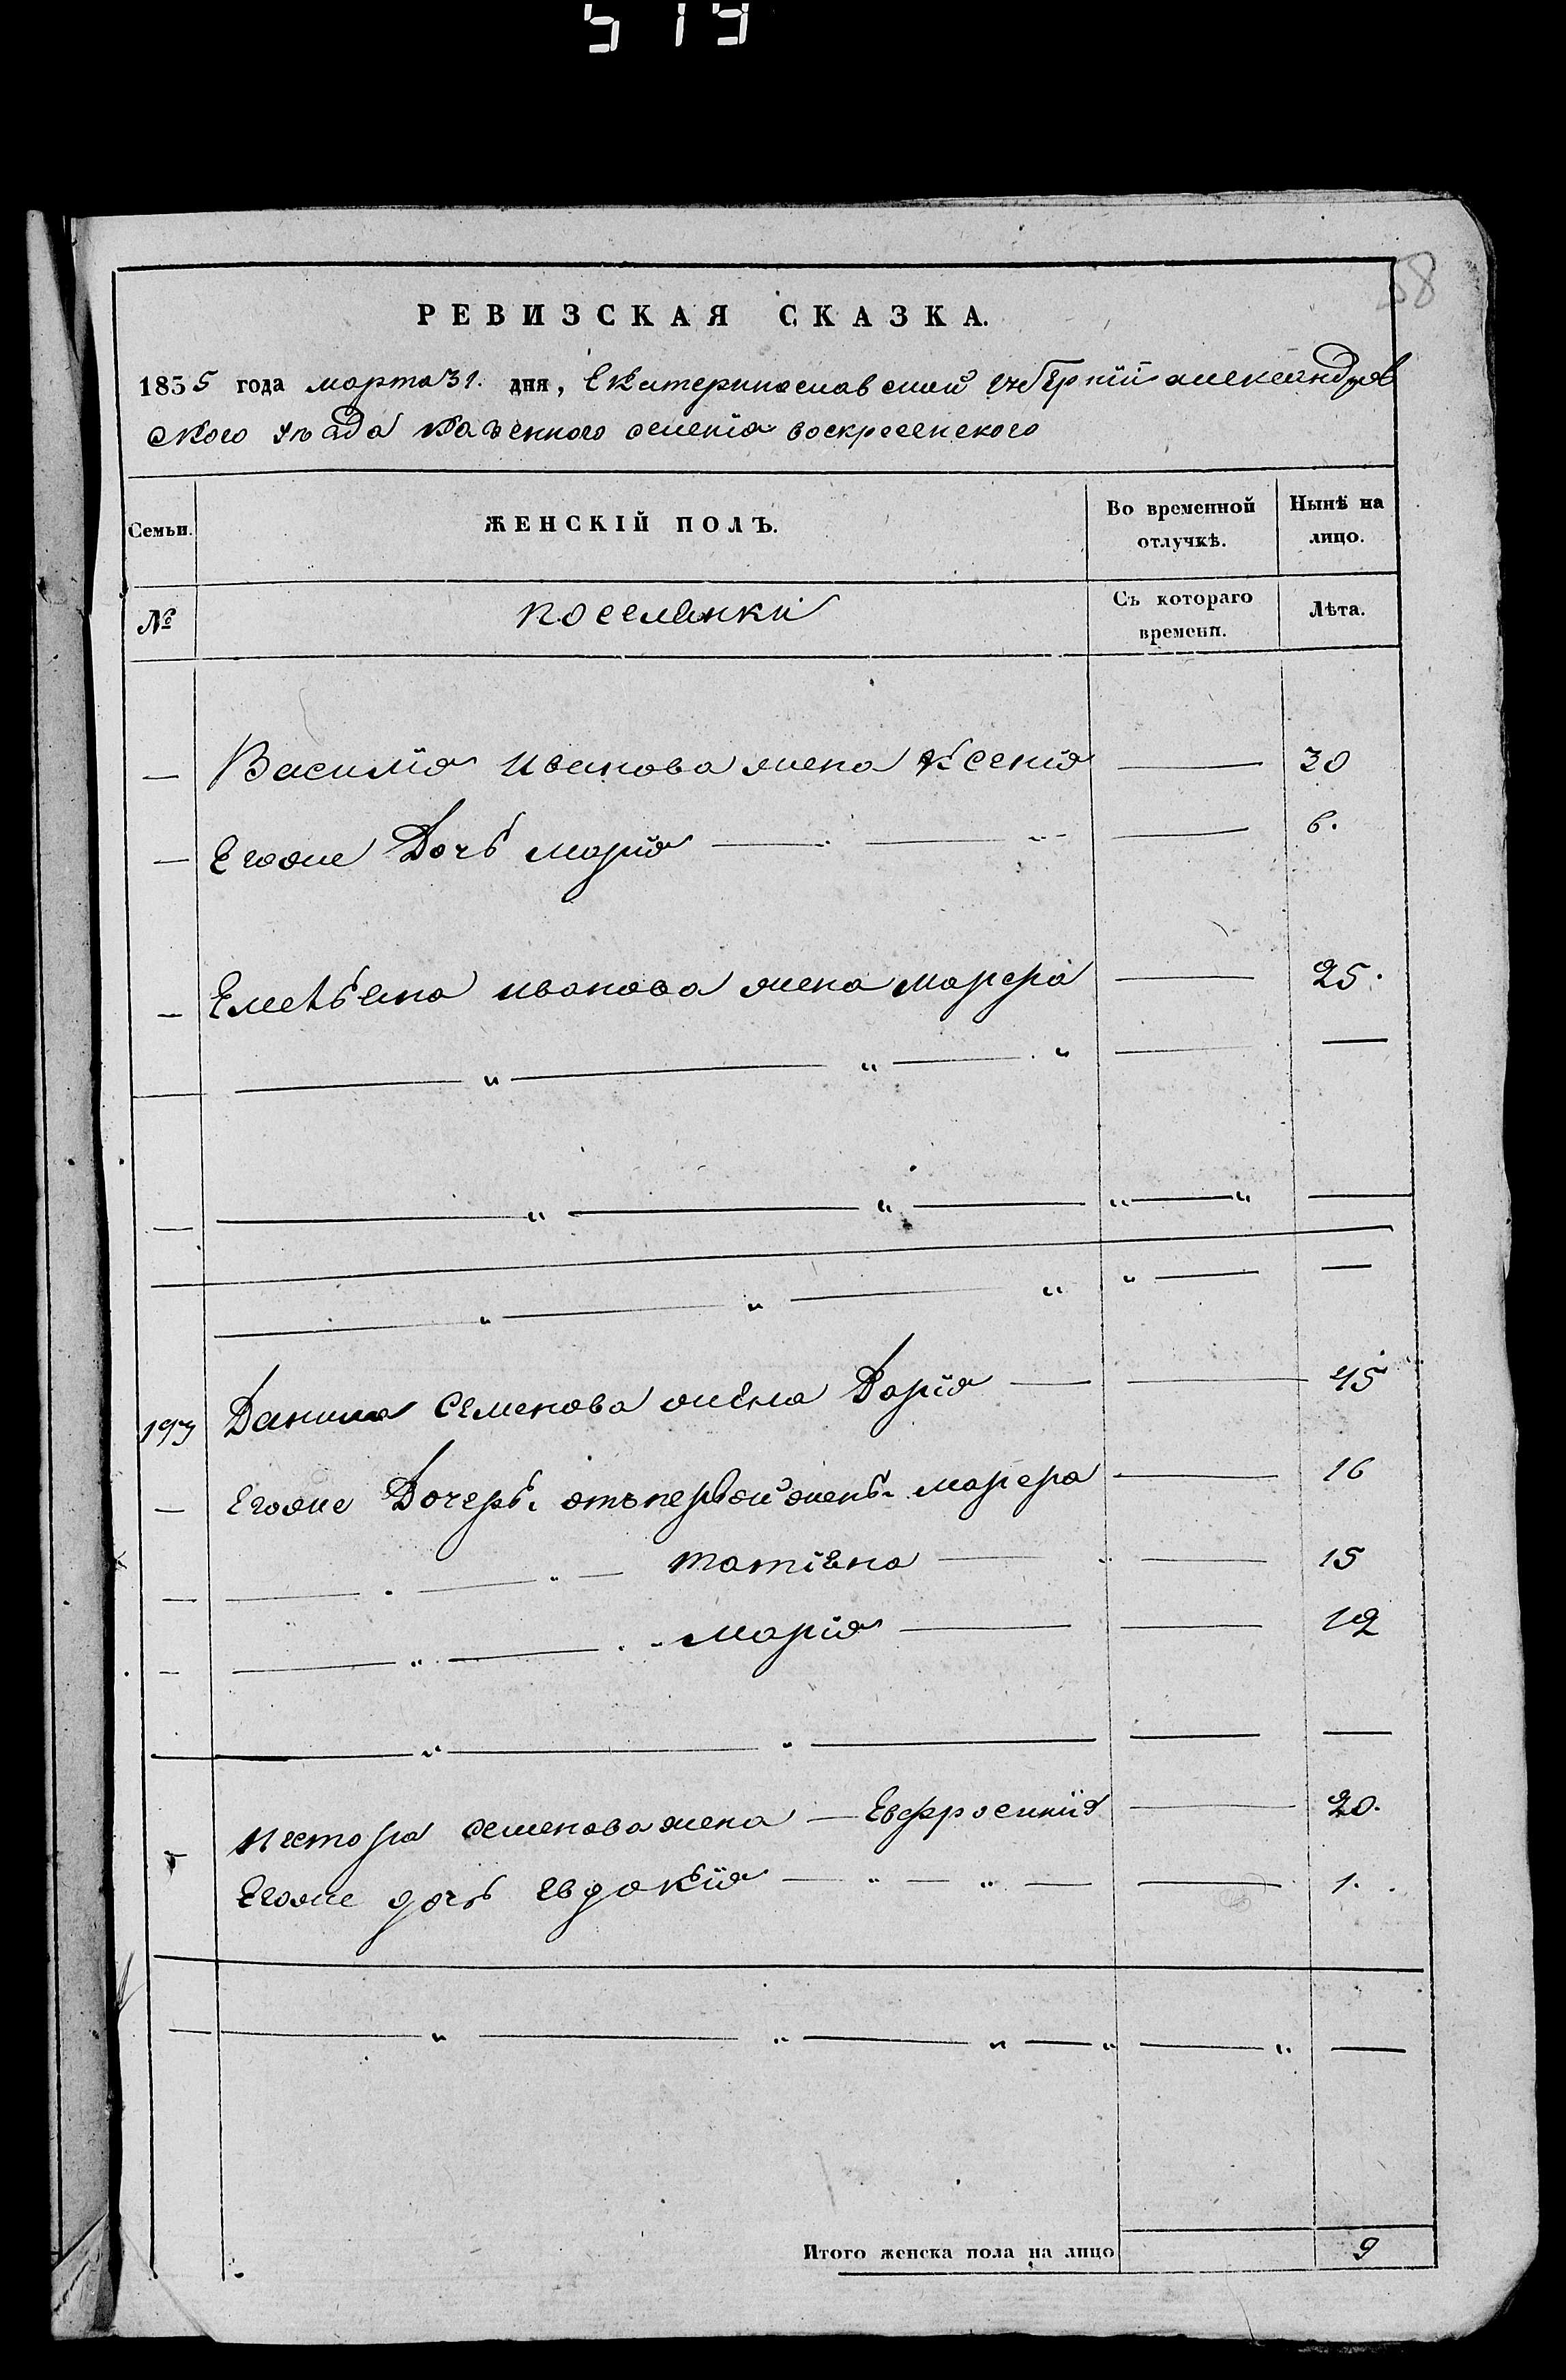 519
58
РЕВИЗСКАЯ СКАЗКА.
1835 года марта 31. дня, Екатеринославской губерніи александров
ского уезда казенного селенія воскресенского
Семьи. ЖЕНСКІЙ ПОЛЪ. Во временной отлучкѣ. Нынѣ на лицо.
№ поселянки Съ котораго времени. Лѣта.
— Василія иванова жена Ксенія — 30
— Егоже Дочь марія — 6.
— Емельяна иванова жена марфа — 25.
— „ — „ — „ — —
— — „ — „ — „ — „ —
— „ — „ — „ „ — —
193 Данила Семенова жена Дарія — — 45
— Егоже Дочерь. отъ первой жены. марфра — 16
— — „ — „ — татіяна — — 15
— — „ — „ - марія — — 12
— „ — „ — — —
- нестора семенова жена — Евфросинія — 20.
Егоже дочь евдокія — „ — „ — — 1.
— — „ — „ — „ — „ — „ —
Итого женска пола на лицо 9